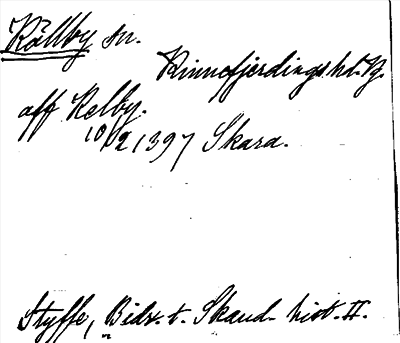 Källby sn.
Kinnefjerdings hd. Vg.
aff Kelby.
10/2 1397 Skara.
Styffe, Bidr. t. Skand. hist. II.